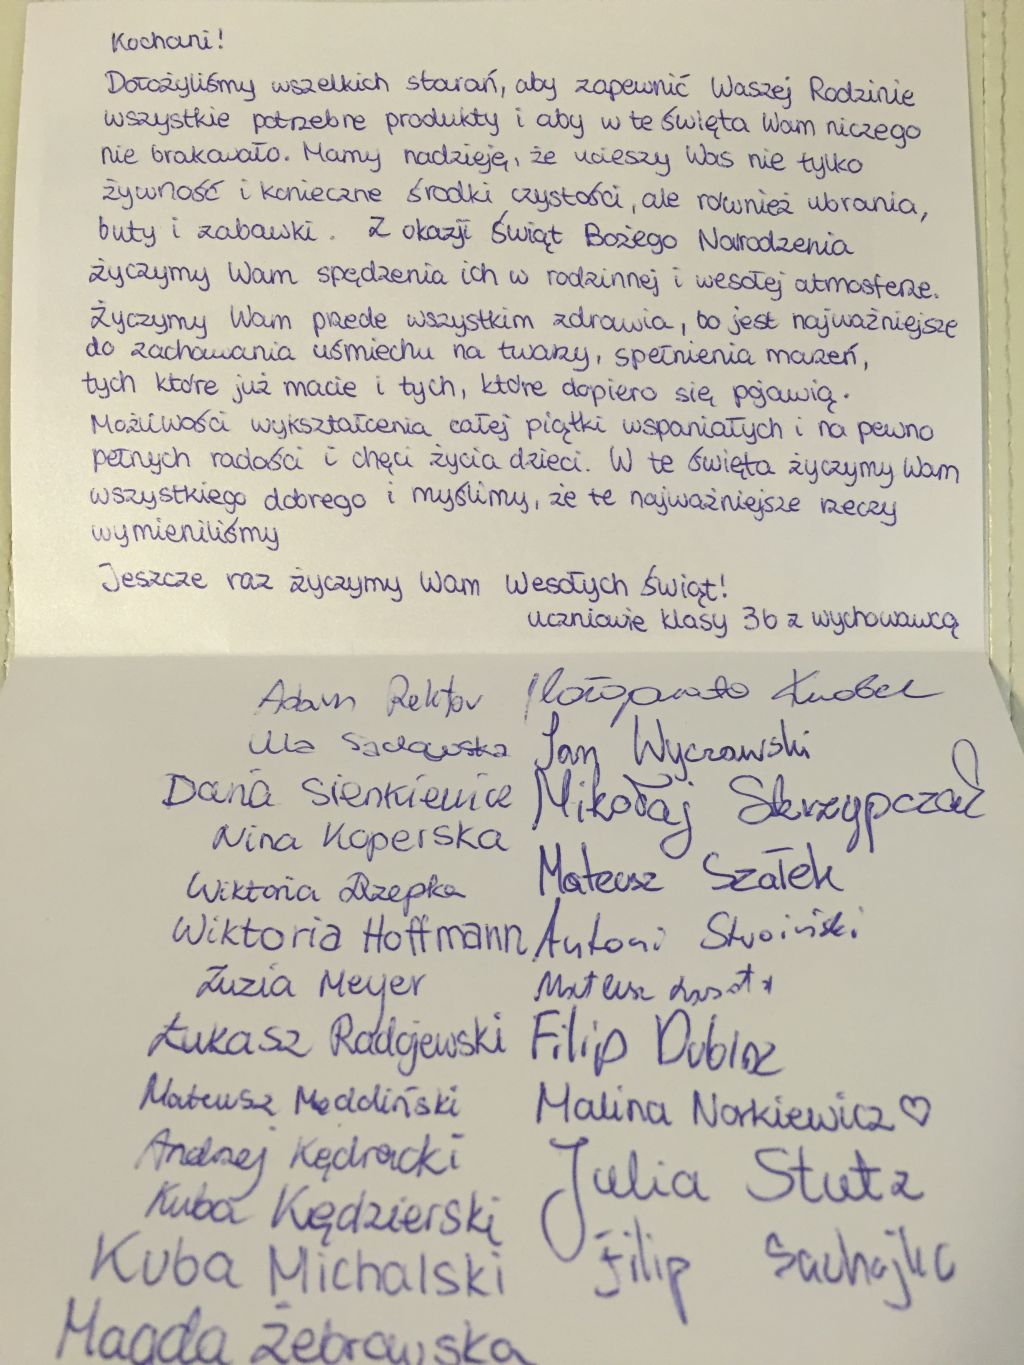 Kochani!
Dołożyliśmy wszelkich starań, aby zapewnić Waszej Rodzinie
wszystkie potrzebne produkty i aby w te święta Wam niczego
nie brakowało. Mamy nadzieję, że ucieszy Was nie tylko
żywność i konieczne środki czystości, ale również ubrania,
buty i zabawki. Z okazji Świąt Bożego Narodzenia
życzymy Wam spędzenia ich w rodzinnej i wesołej atmosferze.
Życzymy Wam przede wszystkim zdrowia, bo jest najważniejsze
do zachowania uśmiechu na twarzy, spełnienia marzeń,
tych które już macie i tych, które dopiero się pojawią.
Możliwości wykształcenia całej piątki wspaniałych i na pewno
pełnych radości i chęci życia dzieci. W te święta życzymy Wam
wszystkiego dobrego i myślimy, że te najważniejsze rzeczy
wymieniliśmy
Jeszcze raz życzymy Wam Wesołych Świąt!
uczniowie klasy 3b z wychowawcą
Adam Rektor
Małgorzata
Jan Wyczawski
Daria Sienkiewicz
Mikołaj Skrzypczak
Nina Koperska
Mateusz Szałek
Wiktoria Rzepka
Wiktoria Hoffmann
Antoni Stroiński
Zuzia Meyer
Mateusz
Łukasz Radojewski
Filip Dubisz
Mateusz
Malina Narkiewicz ♡
Andrzej Kędracki
Julia Stutz
Kuba Kędzierski
Filip
Kuba Michalski
Magda Żebrowska